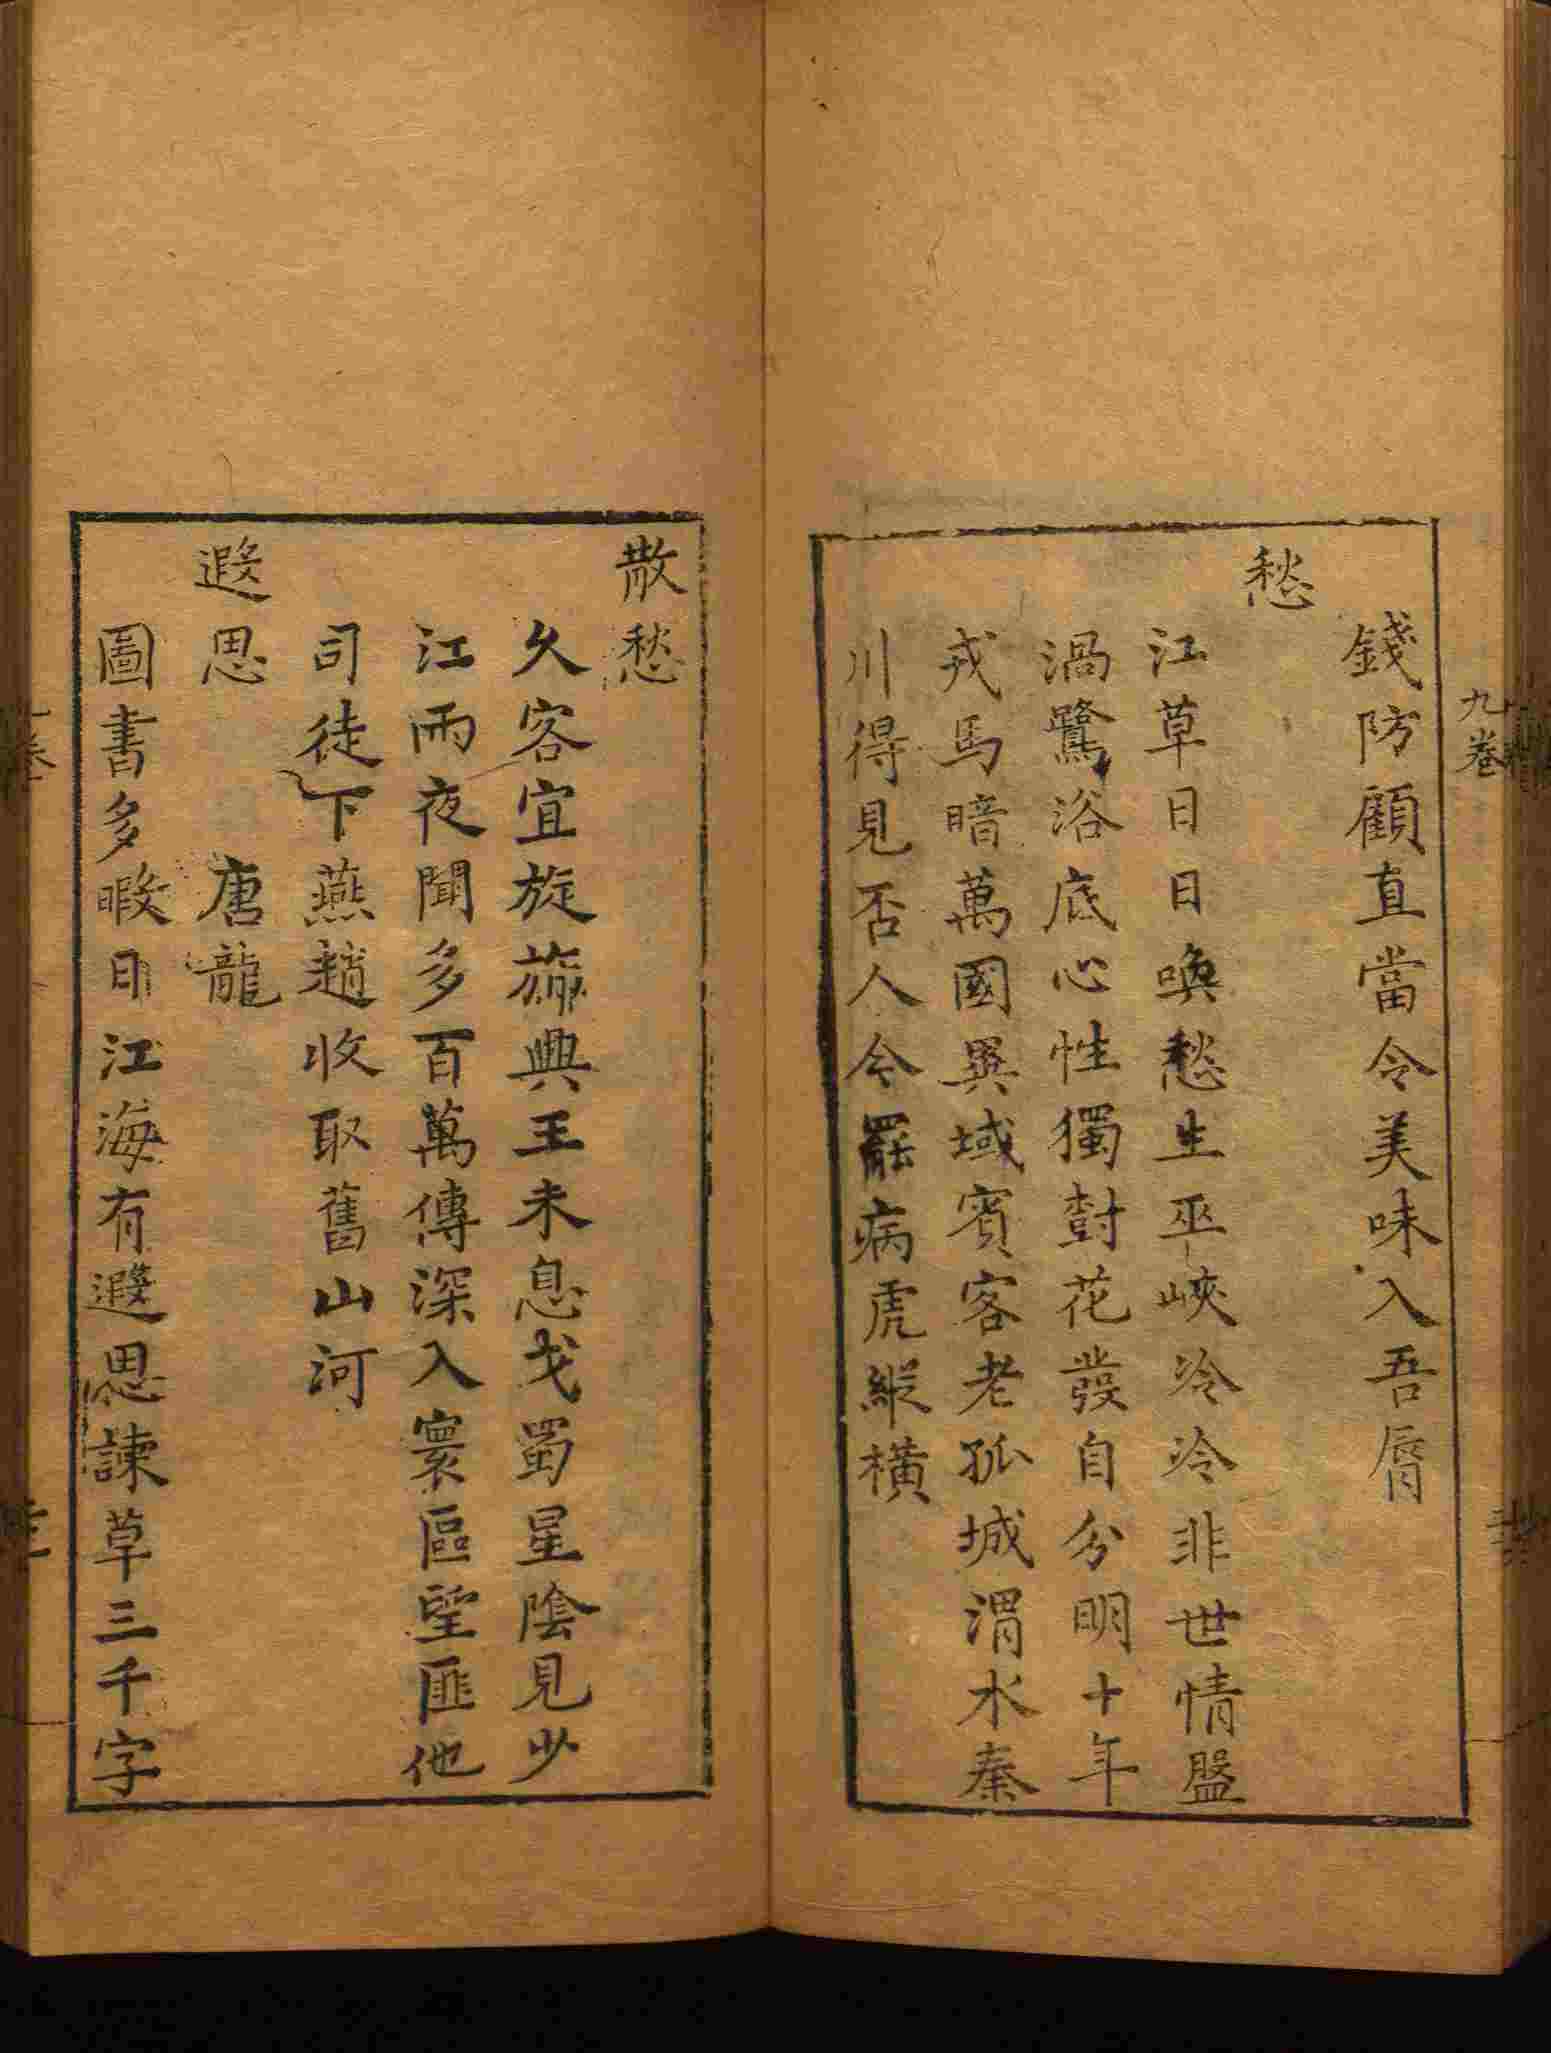 錢防顧直當令美味入吾脣
愁
江草日日喚愁生巫峽冷冷非世情盤
渦鷺浴底心性獨尌花發自分明十年
戎馬暗萬國異域賓客老孤城渭水秦
川得見否人今罷病虎縱橫
散愁
久客宜旋旆興王未息戈蜀星陰見少
江雨夜聞多百萬傳深入寰區望匪他
司徒下燕趙收取舊山河
遐思 唐龍
圖書多暇日江海有遐思諫草三千字
九卷